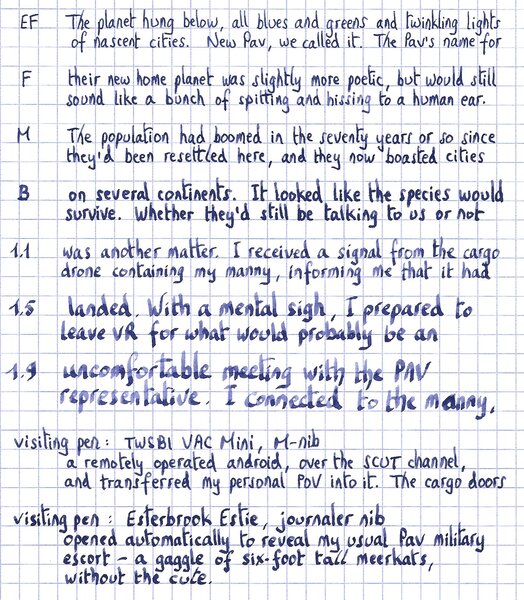 EF The planet hung below, all blues and greens and twinkling lights
of nascent cities. New Pav, we called it. The Pav's name for
F their new home planet was slightly more poetic, but would still
sound like a bunch of spitting and hissing to a human ear.
M The population had boomed in the seventy years or so since
they'd been resettled here, and they now boasted cities
B on several continents. It looked like the species would
survive. Whether they'd still be talking to us or not
1.1 was another matter. I received a signal from the cargo
drone containing my manny, informing me that it had
1.5 landed. With a mental sigh, I prepared to
leave VR for what would probably be an
1.9 uncomfortable meeting with the PAV
representative. I connected to the manny,
visiting pen: TWSBI VAC Mini, M-nib
a remotely operated android, over the SCUT channel,
and transferred my personal POV into it. The cargo doors
visiting pen: Esterbrook Estie, journaler nib
opened automatically to reveal my usual Pav military
escort – a gaggle of six-foot tall meerkats,
without the cute.